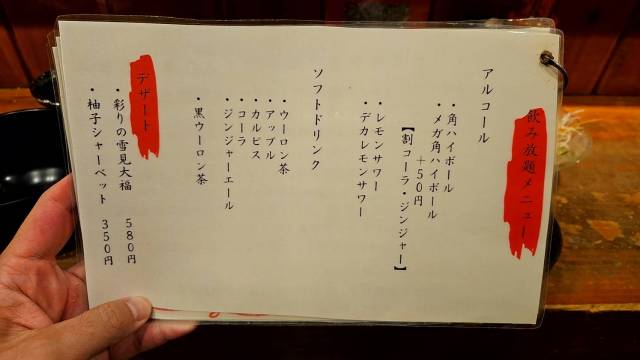 飲み放題メニュー
アルコール
・角ハイボール
・メガ角ハイボール
＋50円
【割コーラ・ジンジャー】
・レモンサワー
・デカレモンサワー
ソフトドリンク
・ウーロン茶
・アップル
・カルピス
・コーラ
・ジンジャーエール
・黒ウーロン茶
デザート
・彩りの雪見大福 580円
・柚子シャーベット 350円